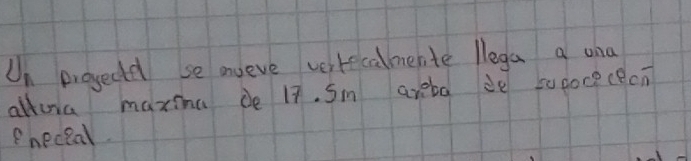 Un proyectil se mueve vertecalmente llega a una
altura maxima de 17.5m areba de su posececn
eneceal.